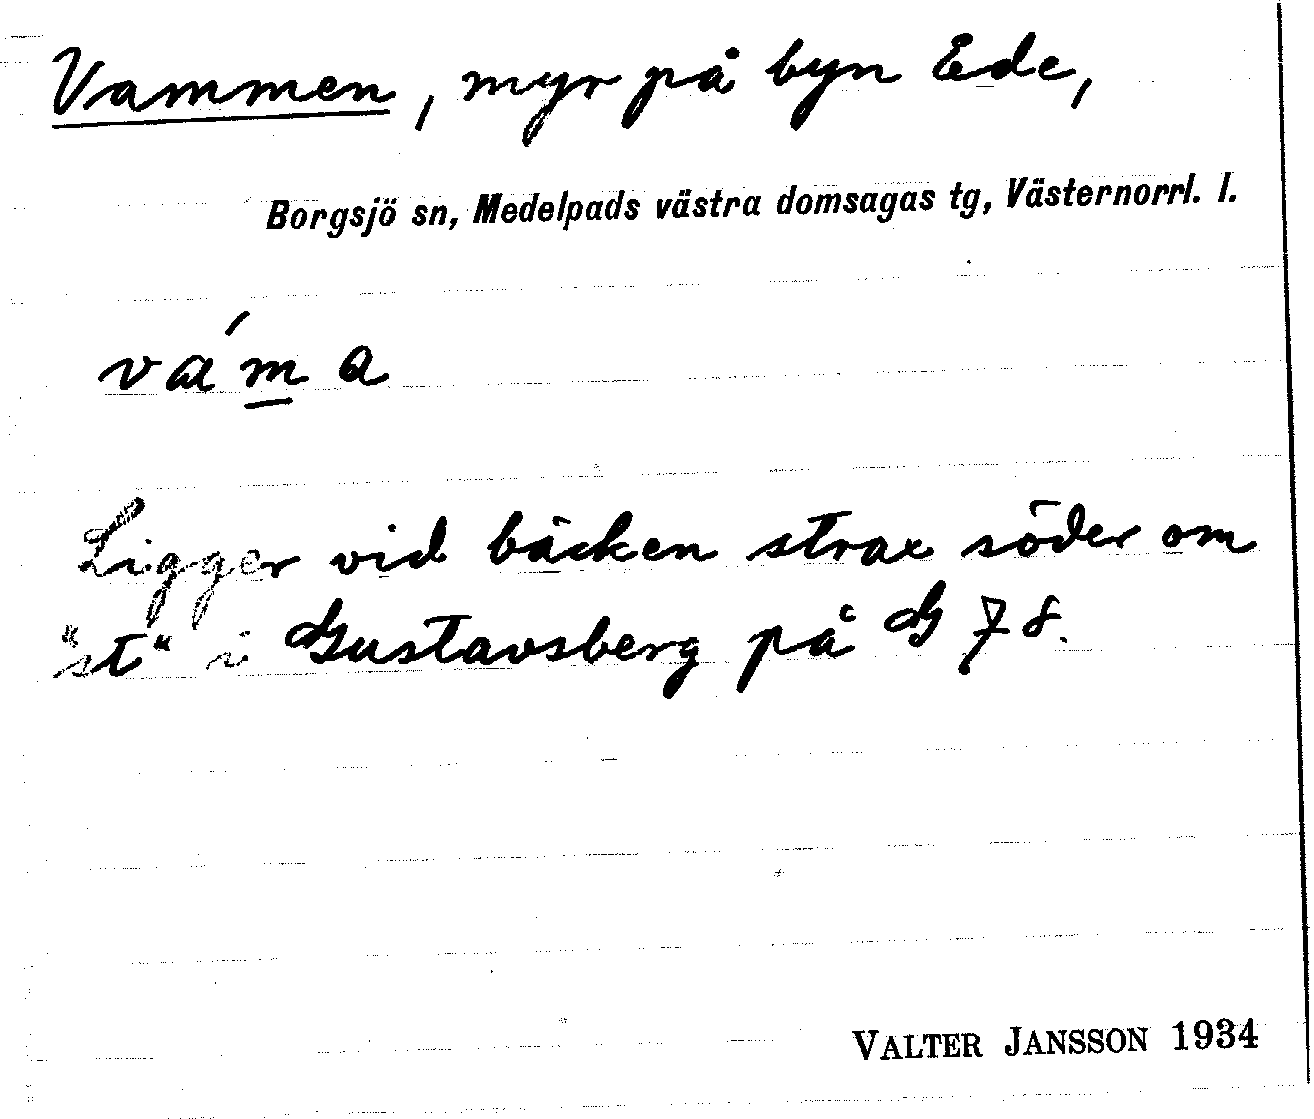 Vammen, myr på byn Ede,
Borgsjö sn, Medelpads västra domsagas tg, Västernorrl. l.
vám̲a
Ligger vid bäcken strax söder om
"st" i Gustavsberg på G 78.
VALTER JANSSON 1934